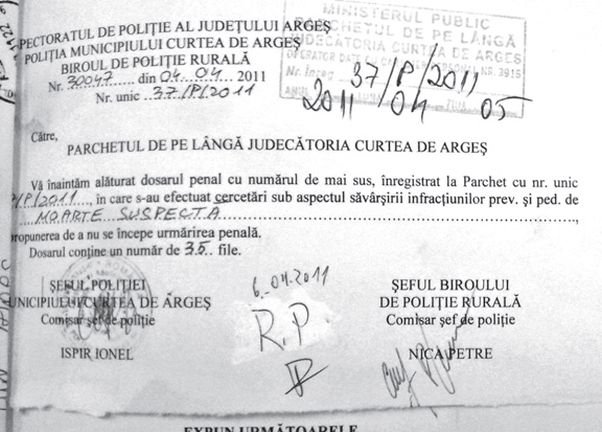 PECTORATUL DE POLIŢIE AL JUDEŢULUI ARGEŞ
POLIŢIA MUNICIPIULUI CURTEA DE ARGEŞ
BIROUL DE POLIŢIE RURALĂ
Nr. 30047 din 04. 04. 2011
Nr. unic 37/P/2011
MINISTERUL PUBLIC
PARCHETUL DE PE LÂNGĂ
JUDECĂTORIA CURTEA DE ARGEŞ
OPERATOR DATE CU CARACTER PERSONAL NR. 3916
Nr. înreg. 37/P/2011
2011 04 05
Către,
PARCHETUL DE PE LÂNGĂ JUDECĂTORIA CURTEA DE ARGEŞ
Vă înaintăm alăturat dosarul penal cu numărul de mai sus, înregistrat la Parchet cu nr. unic
/P/2011, în care s-au efectuat cercetări sub aspectul săvârşirii infracţiunilor prev. şi ped. de
MOARTE SUSPECTA,
ropunerea de a nu se începe urmărirea penală.
Dosarul conţine un număr de 35 file.
ŞEFUL POLIŢIEI
UNICIPIULUI CURTEA DE ARGEŞ
Comisar şef de poliţie
ISPIR IONEL
6.04.2011
R.P
ŞEFUL BIROULUI
DE POLIŢIE RURALĂ
Comisar şef de poliţie
NICA PETRE
EXPUN URMĂTOARELE